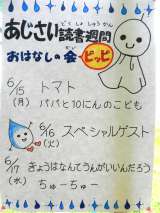 あじさい読書週間
どくしょしゅうかん
おはなしの会 ピッピ
かい
6/15 トマト
(月) パパと10にんのこども
6/16 スペシャルゲスト
(火)
6/17 きょうはなんてうんがいいんだろう
(水) ちゅーちゅー